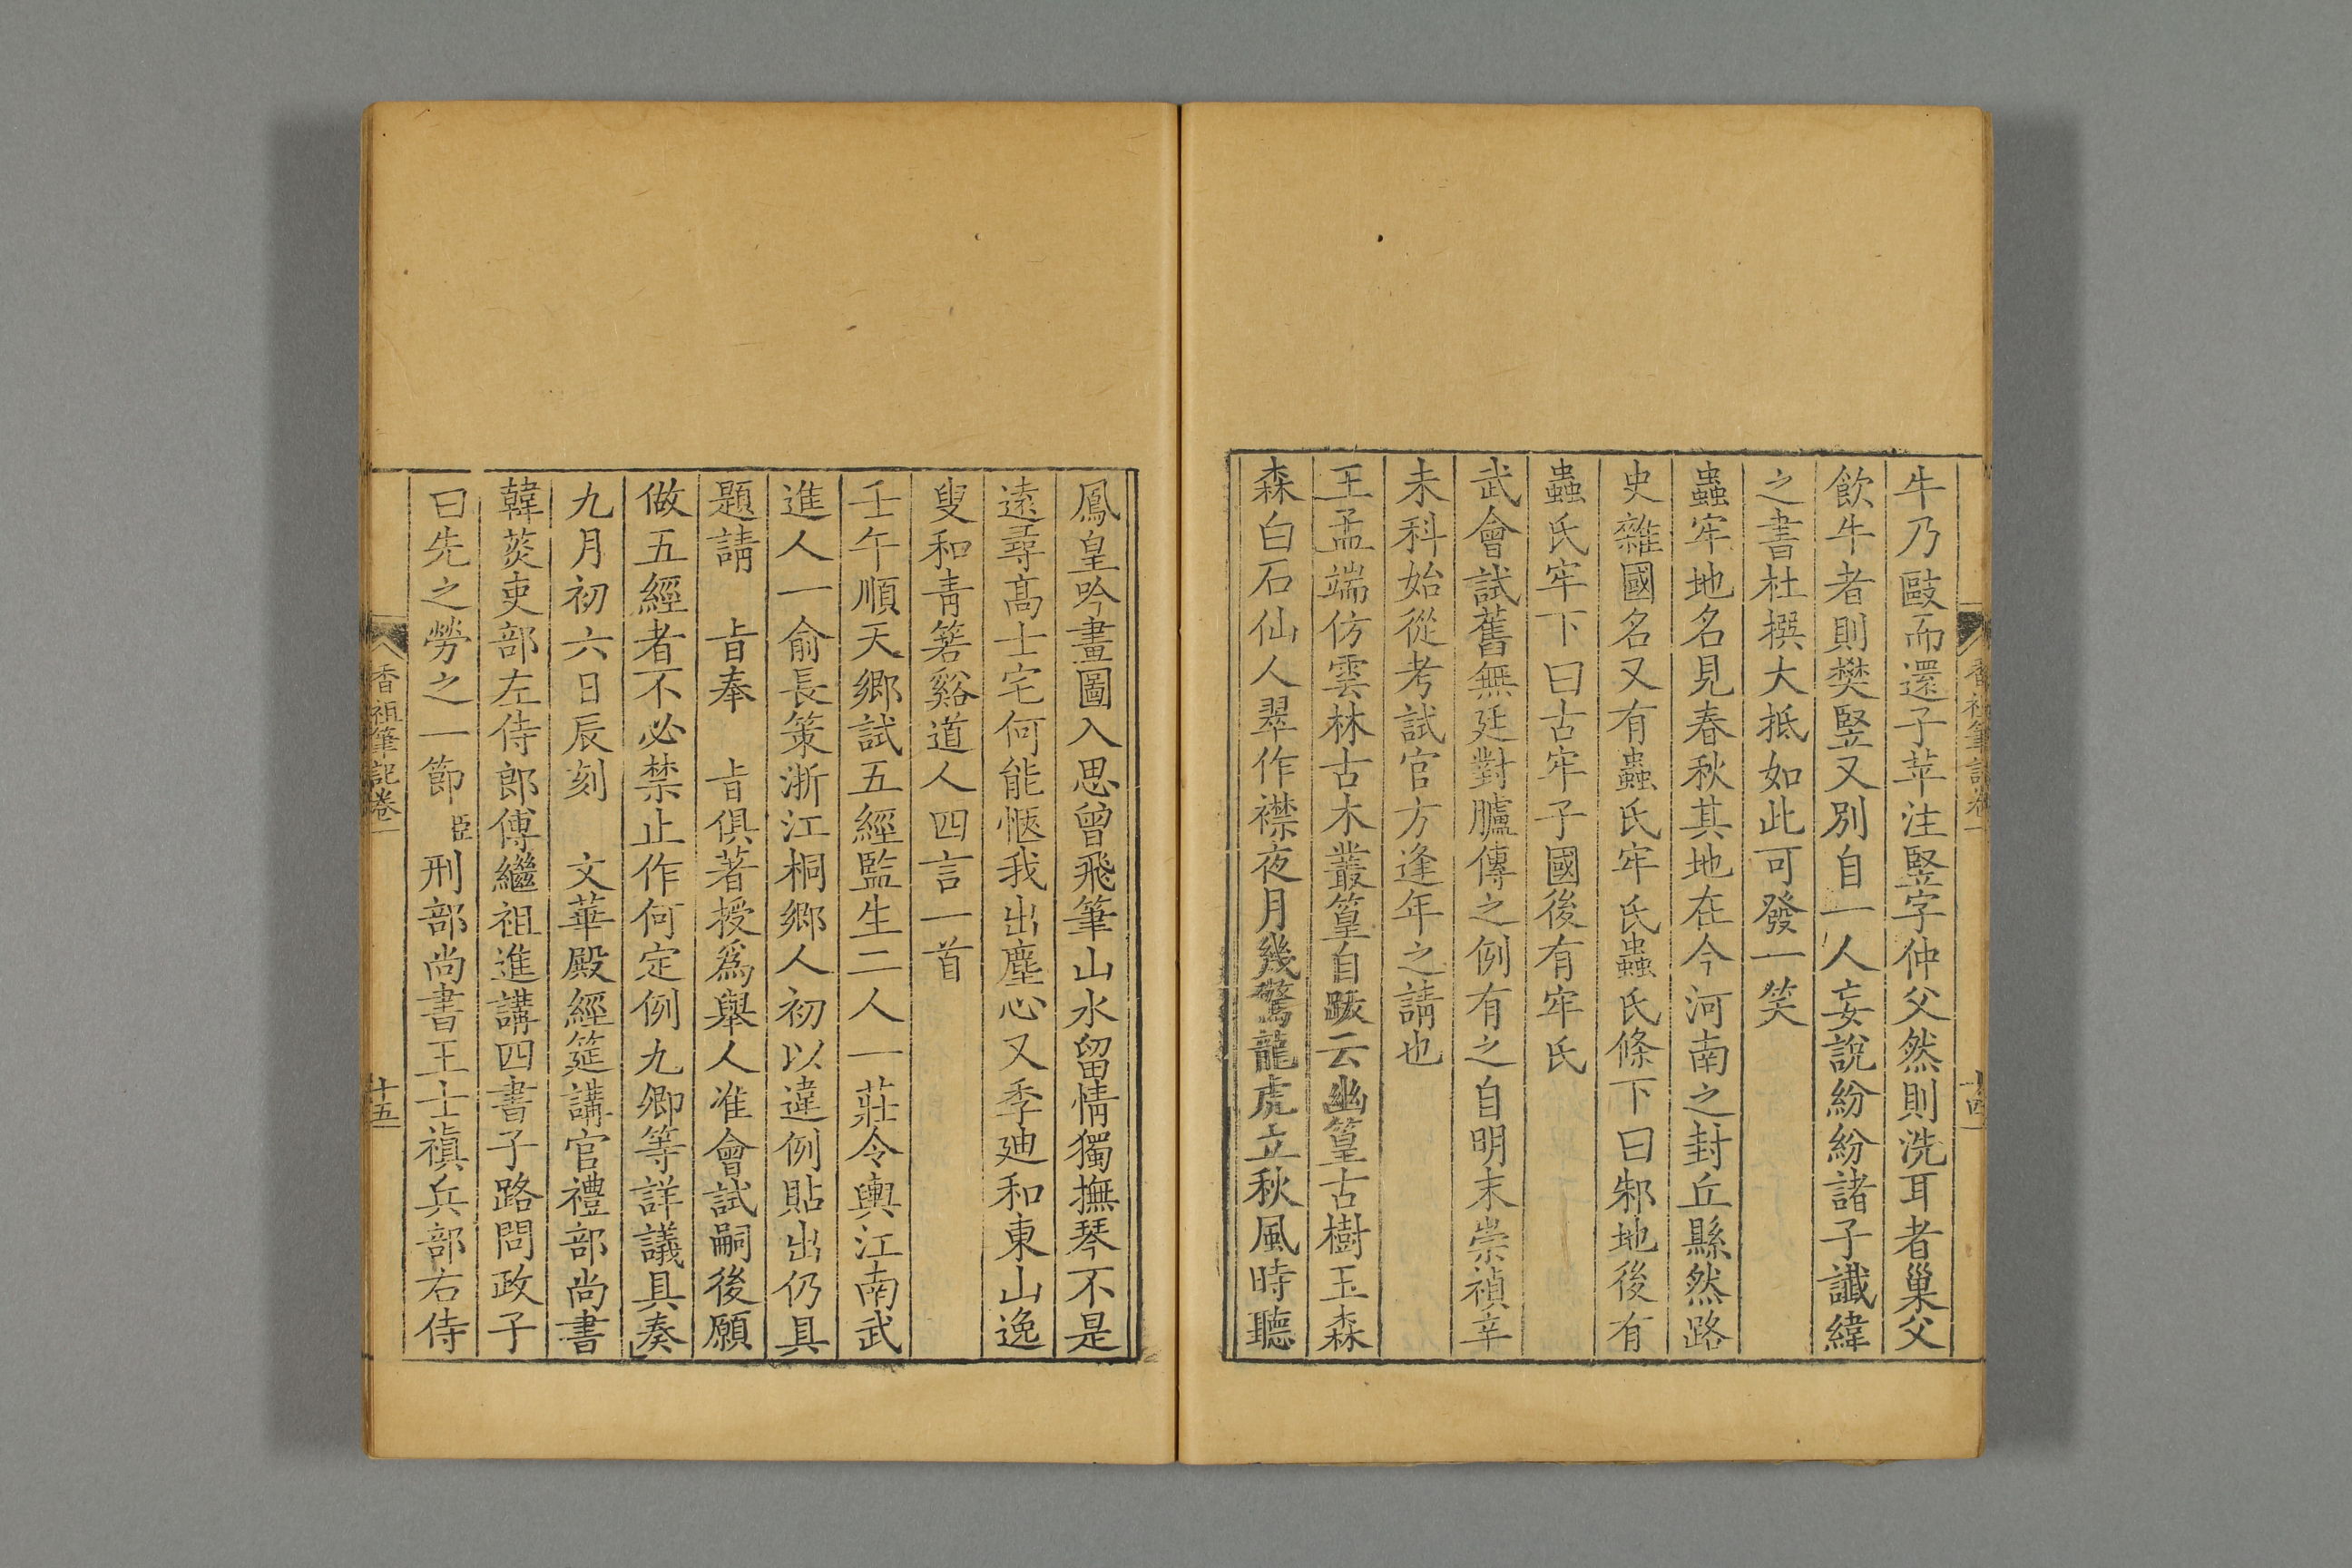 牛乃敺而還子苹注竪字仲父然則洗耳者巢父
飲牛者則樊竪又別自一人妄說紛紛諸子讖緯
之書杜撰大抵如此可發一笑
蟲牢地名見春秋其地在今河南之封丘縣然路
史雜國名又有蟲氏牢氏蟲氏條下曰邾地後有
蟲氏牢下曰古牢子國後有牢氏
武會試舊無廷對臚傳之例有之自明末崇禎辛
未科始從考試官方逢年之請也
王孟端仿雲林古木叢篁自跋云幽篁古樹玉森
森白石仙人翠作襟夜月幾驚龍虎立秋風時聽
香祖筆記卷一
十四
鳳皇吟畫圖入思曾飛筆山水留情獨撫琴不是
遠尋高士宅何能愜我出塵心又季廸和東山逸
叟和青箬谿道人四言一首
壬午順天鄉試五經監生二人一莊令輿江南武
進人一俞長策浙江桐鄉人初以違例貼出仍具
題請 旨奉 旨俱著授爲舉人准會試嗣後願
做五經者不必禁止作何定例九卿等詳議具奏
九月初六日辰刻 文華殿經筵講官禮部尚書
韓菼吏部左侍郎傅繼祖進講四書子路問政子
曰先之勞之一節臣刑部尚書王士禛兵部右侍
香祖筆記卷一
十五